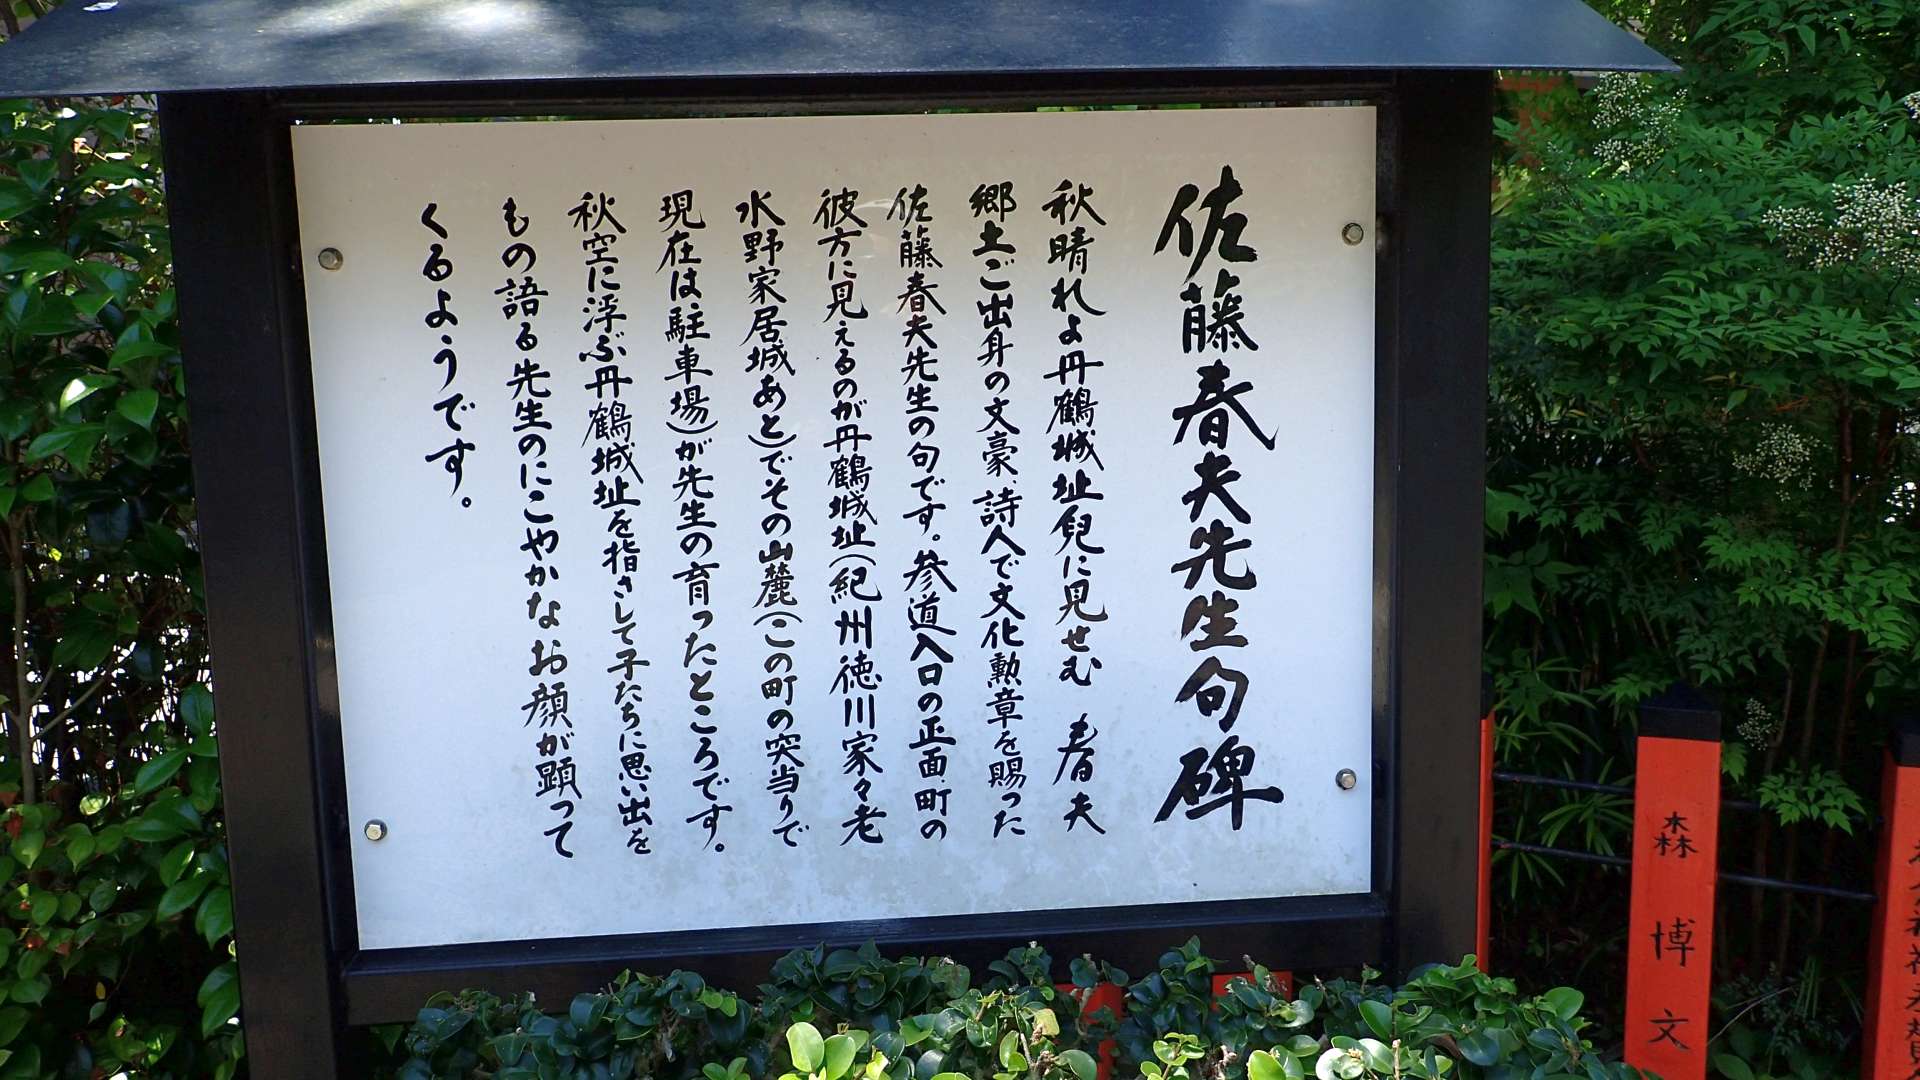 佐藤春夫先生句碑
秋晴れよ丹鶴城址兒に見せむ 春夫
郷土ご出身の文豪、詩人で文化勲章を賜った
佐藤春夫先生の句です。参道入口の正面、町の
彼方に見えるのが丹鶴城址(紀州徳川家々老
水野家居城あと)でその山麓(この町の突当りで
現在は駐車場)が先生の育ったところです。
秋空に浮ぶ丹鶴城址を指さして子たちに思い出を
もの語る先生のにこやかなお顔が顕って
くるようです。
森博文